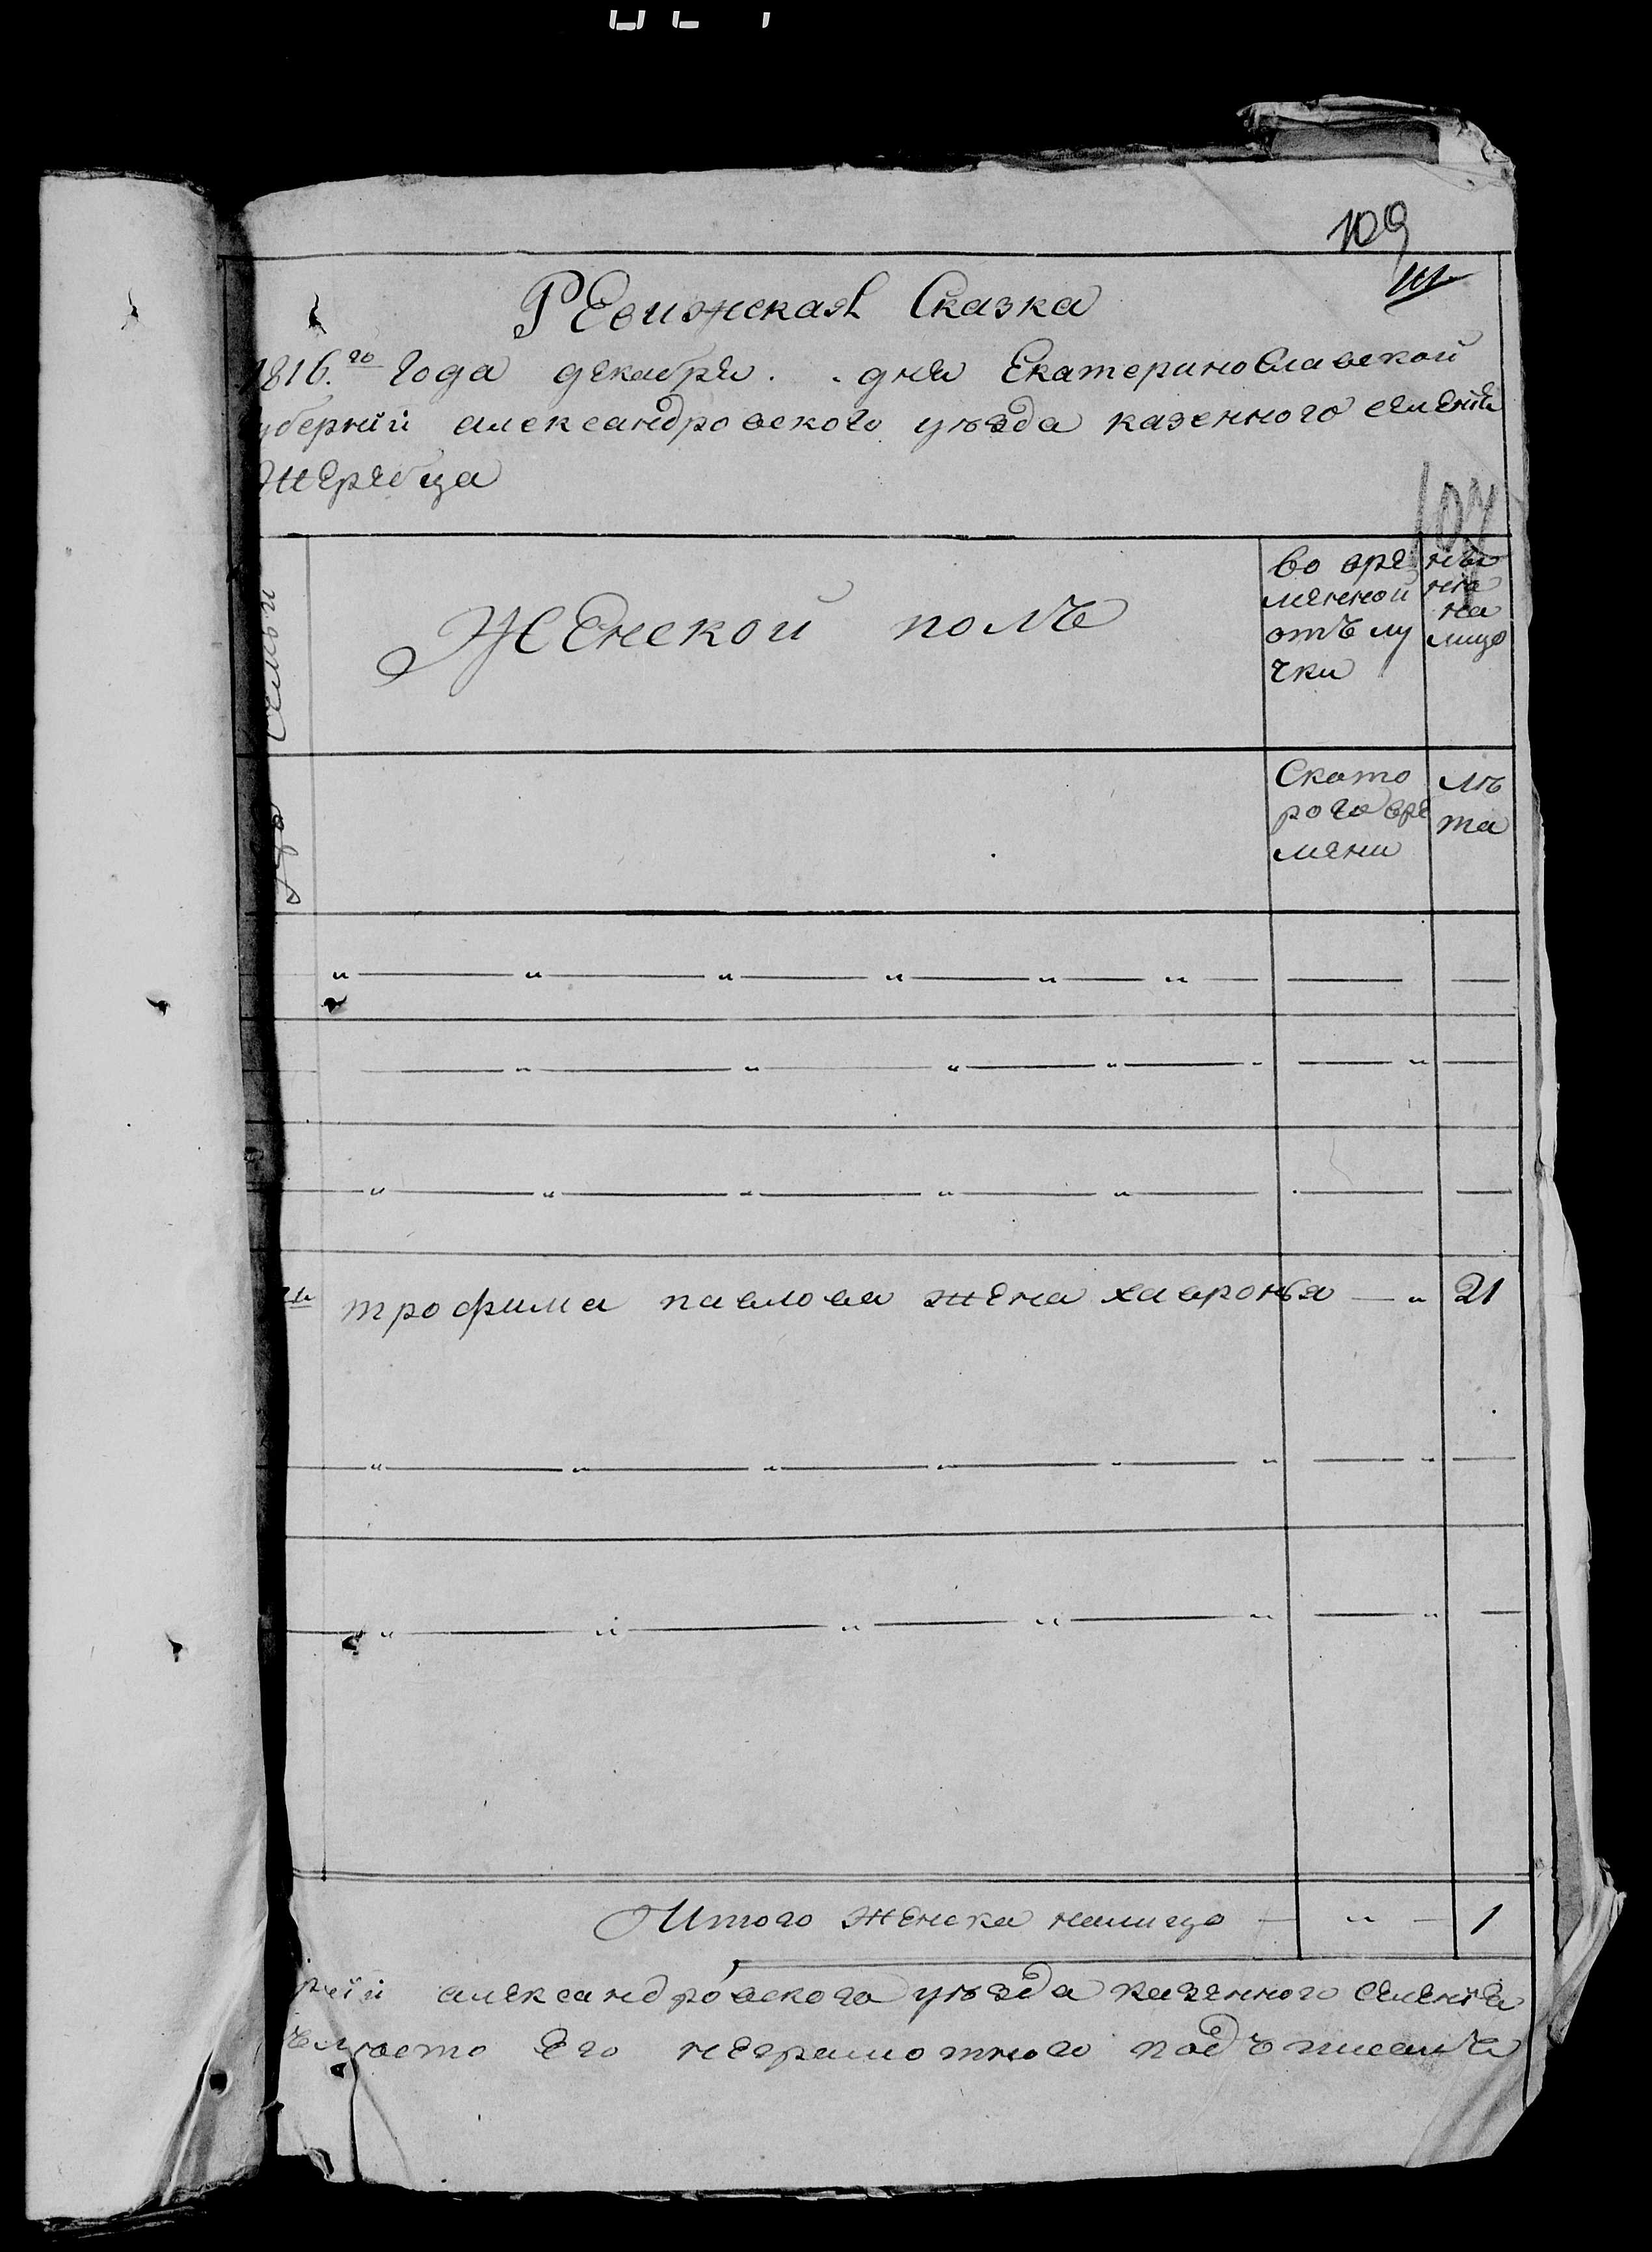 109
111
РЕвижская Сказка
1816.го года декабря . . дня ЕкатериноСлавской
уберніи александровского уѣзда казенного селенія
Жеребца
107
Семьи
ЖЕнской полъ
во вре
мянной
отълу
чки
ны
нѣ
на
лицо
Ското
рого вре
мяни
лѣ
та
трофима павлова жена хавронья — „ 21
Итого женска налицо — „ — 1
рніи александровского уѣзда казенного селенія
вместо Его неграмотного подъписалъ